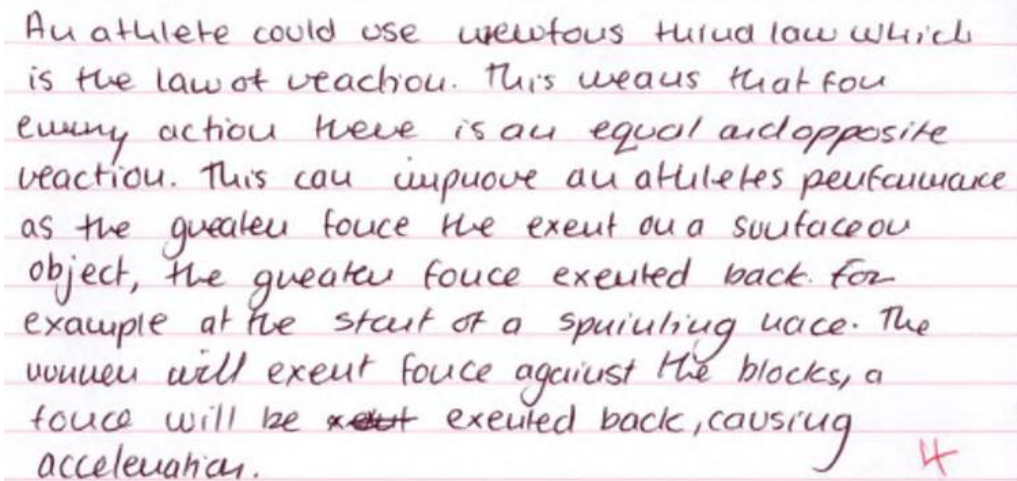 An athlete could use newtons third law which
is the law of reaction. This means that for
every action there is an equal and opposite
reaction. This can improve an athletes performance
as the greater force the exert on a surface or
object, the greater force exerted back. For
example at the start of a sprinting race. The
runner will exert force against the blocks, a
force will be exert exerted back, causing
acceleration.
4